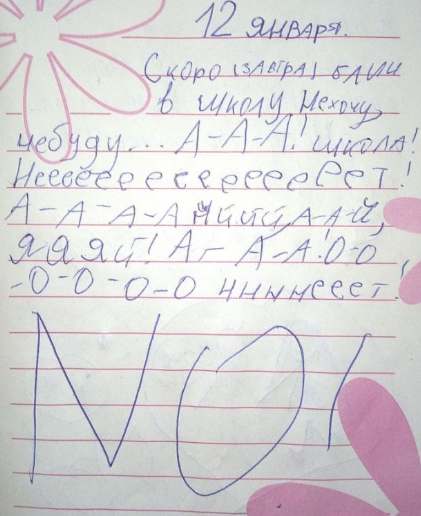 12 января.
Скоро (завтра) блин
в школу Нехочу,
небуду... А-А-А! школа!
Нееееееееееееееет!
А-А-А-А Ййййй А-А-Й,
ЯЯЯЙ! А-А-А!О-О
-О-О-О-О ннннееет!
NO!